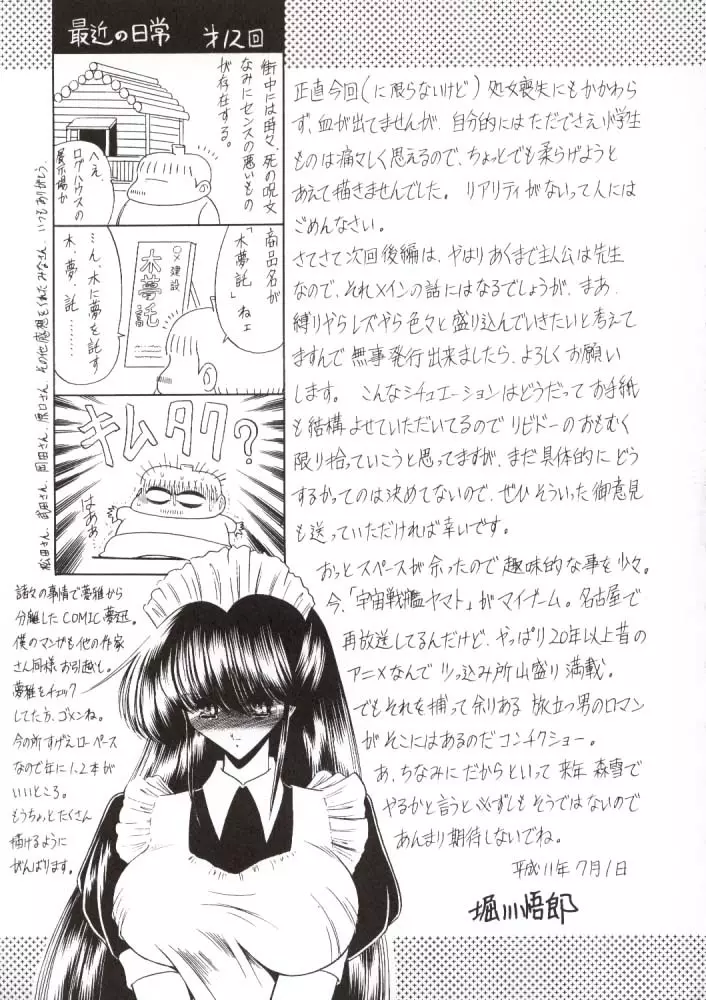 最近の日常 才12回
街中には時々、死の呪文
なみにセンスの悪いもの
が存在する。
へえ、
ログハウスの
展示場か
商品名が
「木夢託」ねェ
○×建設
木夢託
…ん、木に夢を託す
木、夢、託………
キムタク?
はぁぁ
松田さん、武田さん、岡田さん、原口さん、その他感想をくれたみなさん、いつもありがとう。
正直今回(に限らないけど)処女喪失にもかかわら
ず、血が出てませんが、自分的にはただでさえ小学生
ものは痛々しく思えるので、ちょっとでも柔らげようと
あえて描きませんでした。リアリティがないって人には
ごめんなさい。
さてさて次回後編は、やはりあくまで主人公は先生
なので、それメインの話にはなるでしょうが、まあ、
縛りやらレズやら色々と盛り込んでいきたいと考えて
ますんで無事発行出来ましたら、よろしくお願い
します。こんなシチュエーションはどうだってお手紙
も結構よせていただいてるのでリビドーのおもむく
限り拾っていこうと思ってますが、まだ具体的にどう
するかってのは決めてないので、ぜひそういった御意見
も送っていただければ幸いです。
おっとスペースが余ったので趣味的な事を少々。
今、「宇宙戦艦ヤマト」がマイブーム。名古屋で
再放送してるんだけど、やっぱり20年以上昔の
アニメなんでツッ込み所山盛り満載。
でもそれを捕って余りある旅立つ男のロマン
がそこにはあるのだコンチクショー。
あ、ちなみにだからといって来年森雪で
やるかと言うと必ずしもそうではないので
あんまり期待しないでね。
平成11年7月1日
堀川悟郎
諸々の事情で夢雅から
分離したCOMIC夢迅。
僕のマンガも他の作家
さん同様お引越し。
夢雅をチェック
してた方、ゴメンね。
今の所すげえローペース
なので年に1、2本が
いいところ。
もうちょっとたくさん
描けるように
がんばります。